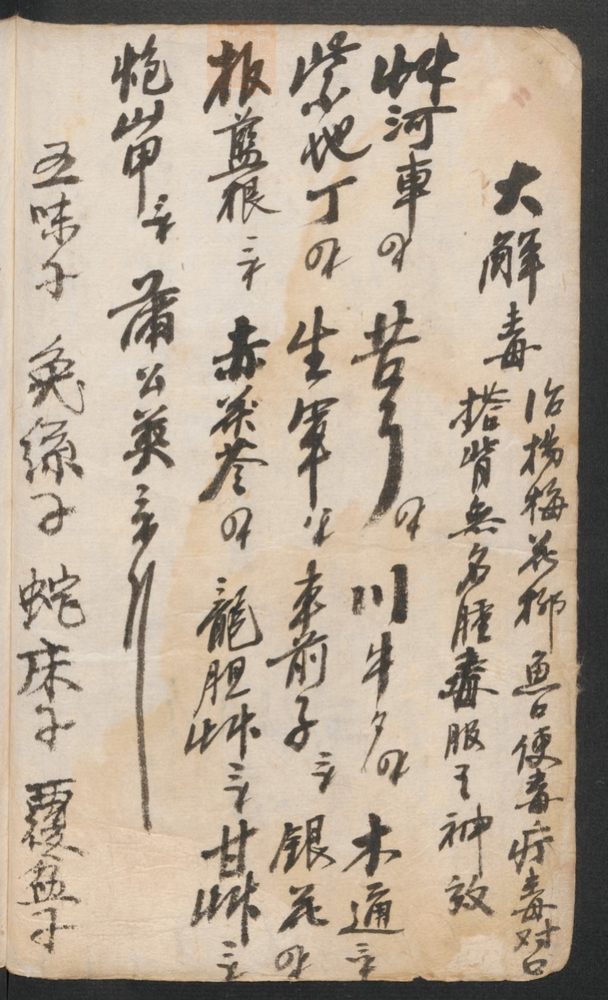 大解毒
治楊梅花柳魚口便毒疔毒对口
搭背無名腫毒服之神效
艸河車 苦 川牛夕 木通三
紫地丁 生軍 車前子三 銀花
板藍根三 赤茯苓 龍胆艸三 甘艸三
炮山甲 蒲公英三
五味子 兔絲子 蛇床子 覆盆子